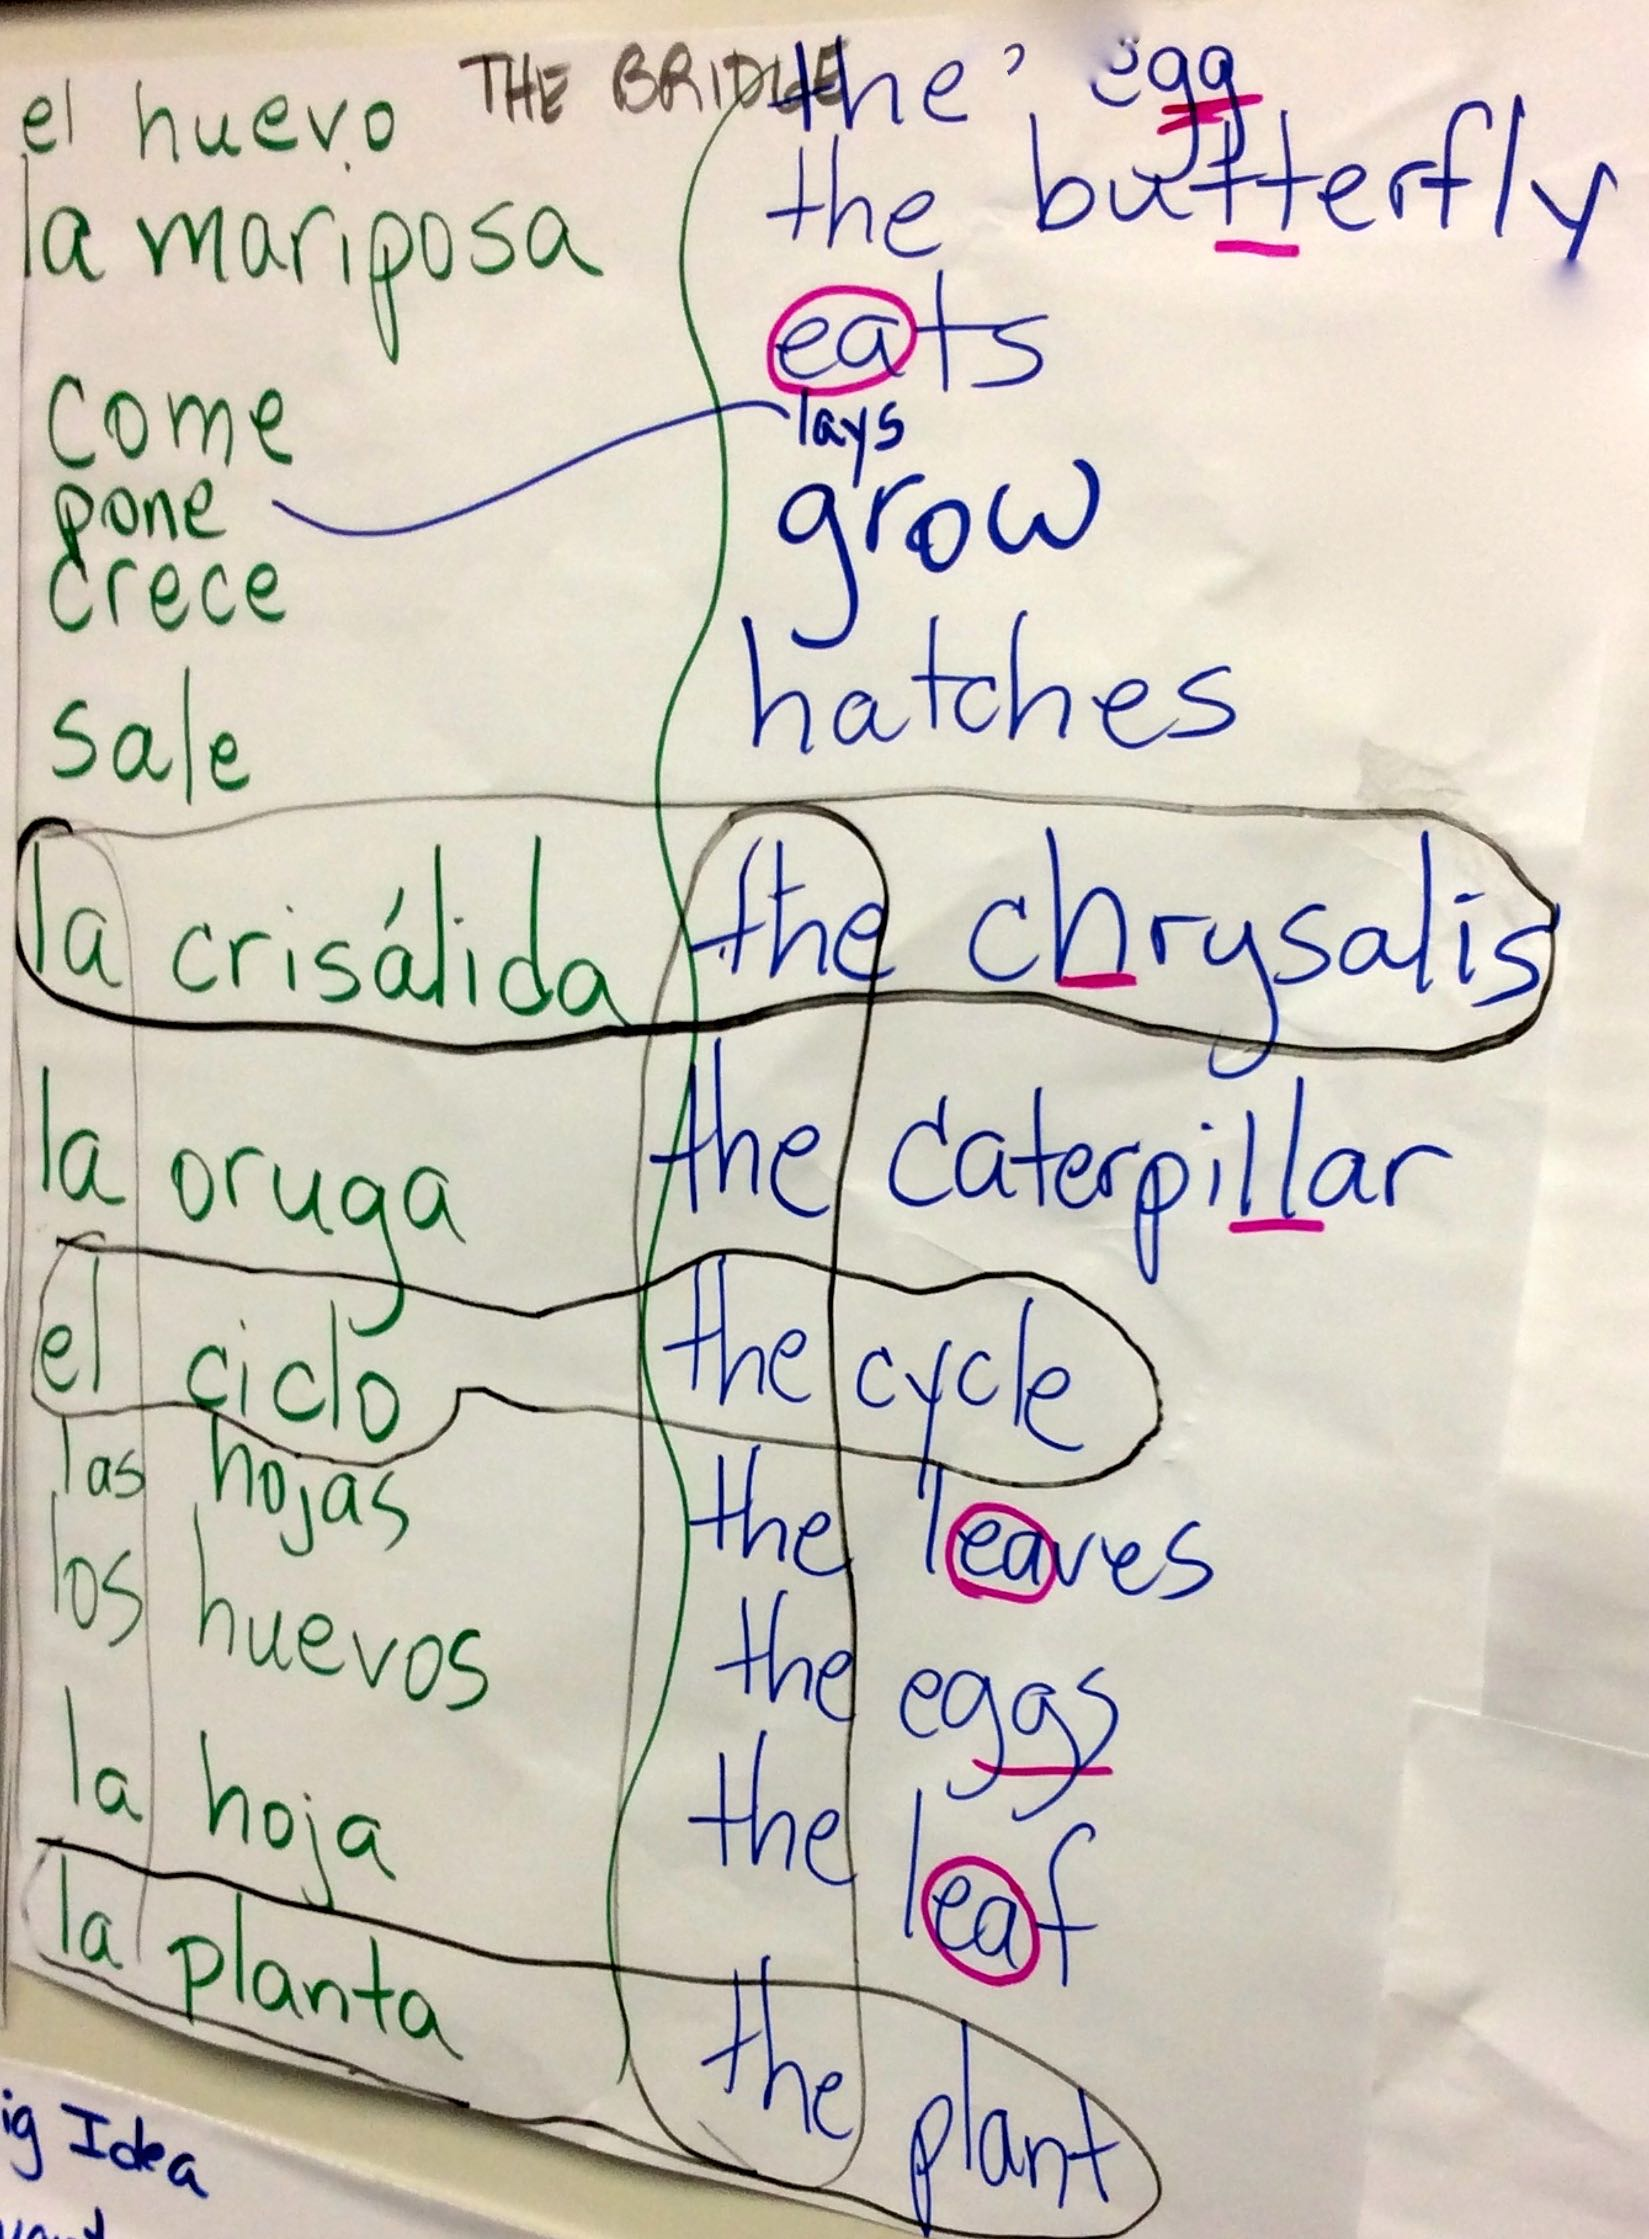 THE BRIDGE
el huevo the egg
la mariposa the butterfly
come eats
pone lays
crece grow
sale hatches
la crisálida the chrysalis
la oruga the caterpillar
el ciclo the cycle
las hojas the leaves
los huevos the eggs
la hoja the leaf
la planta the plant
ig Idea